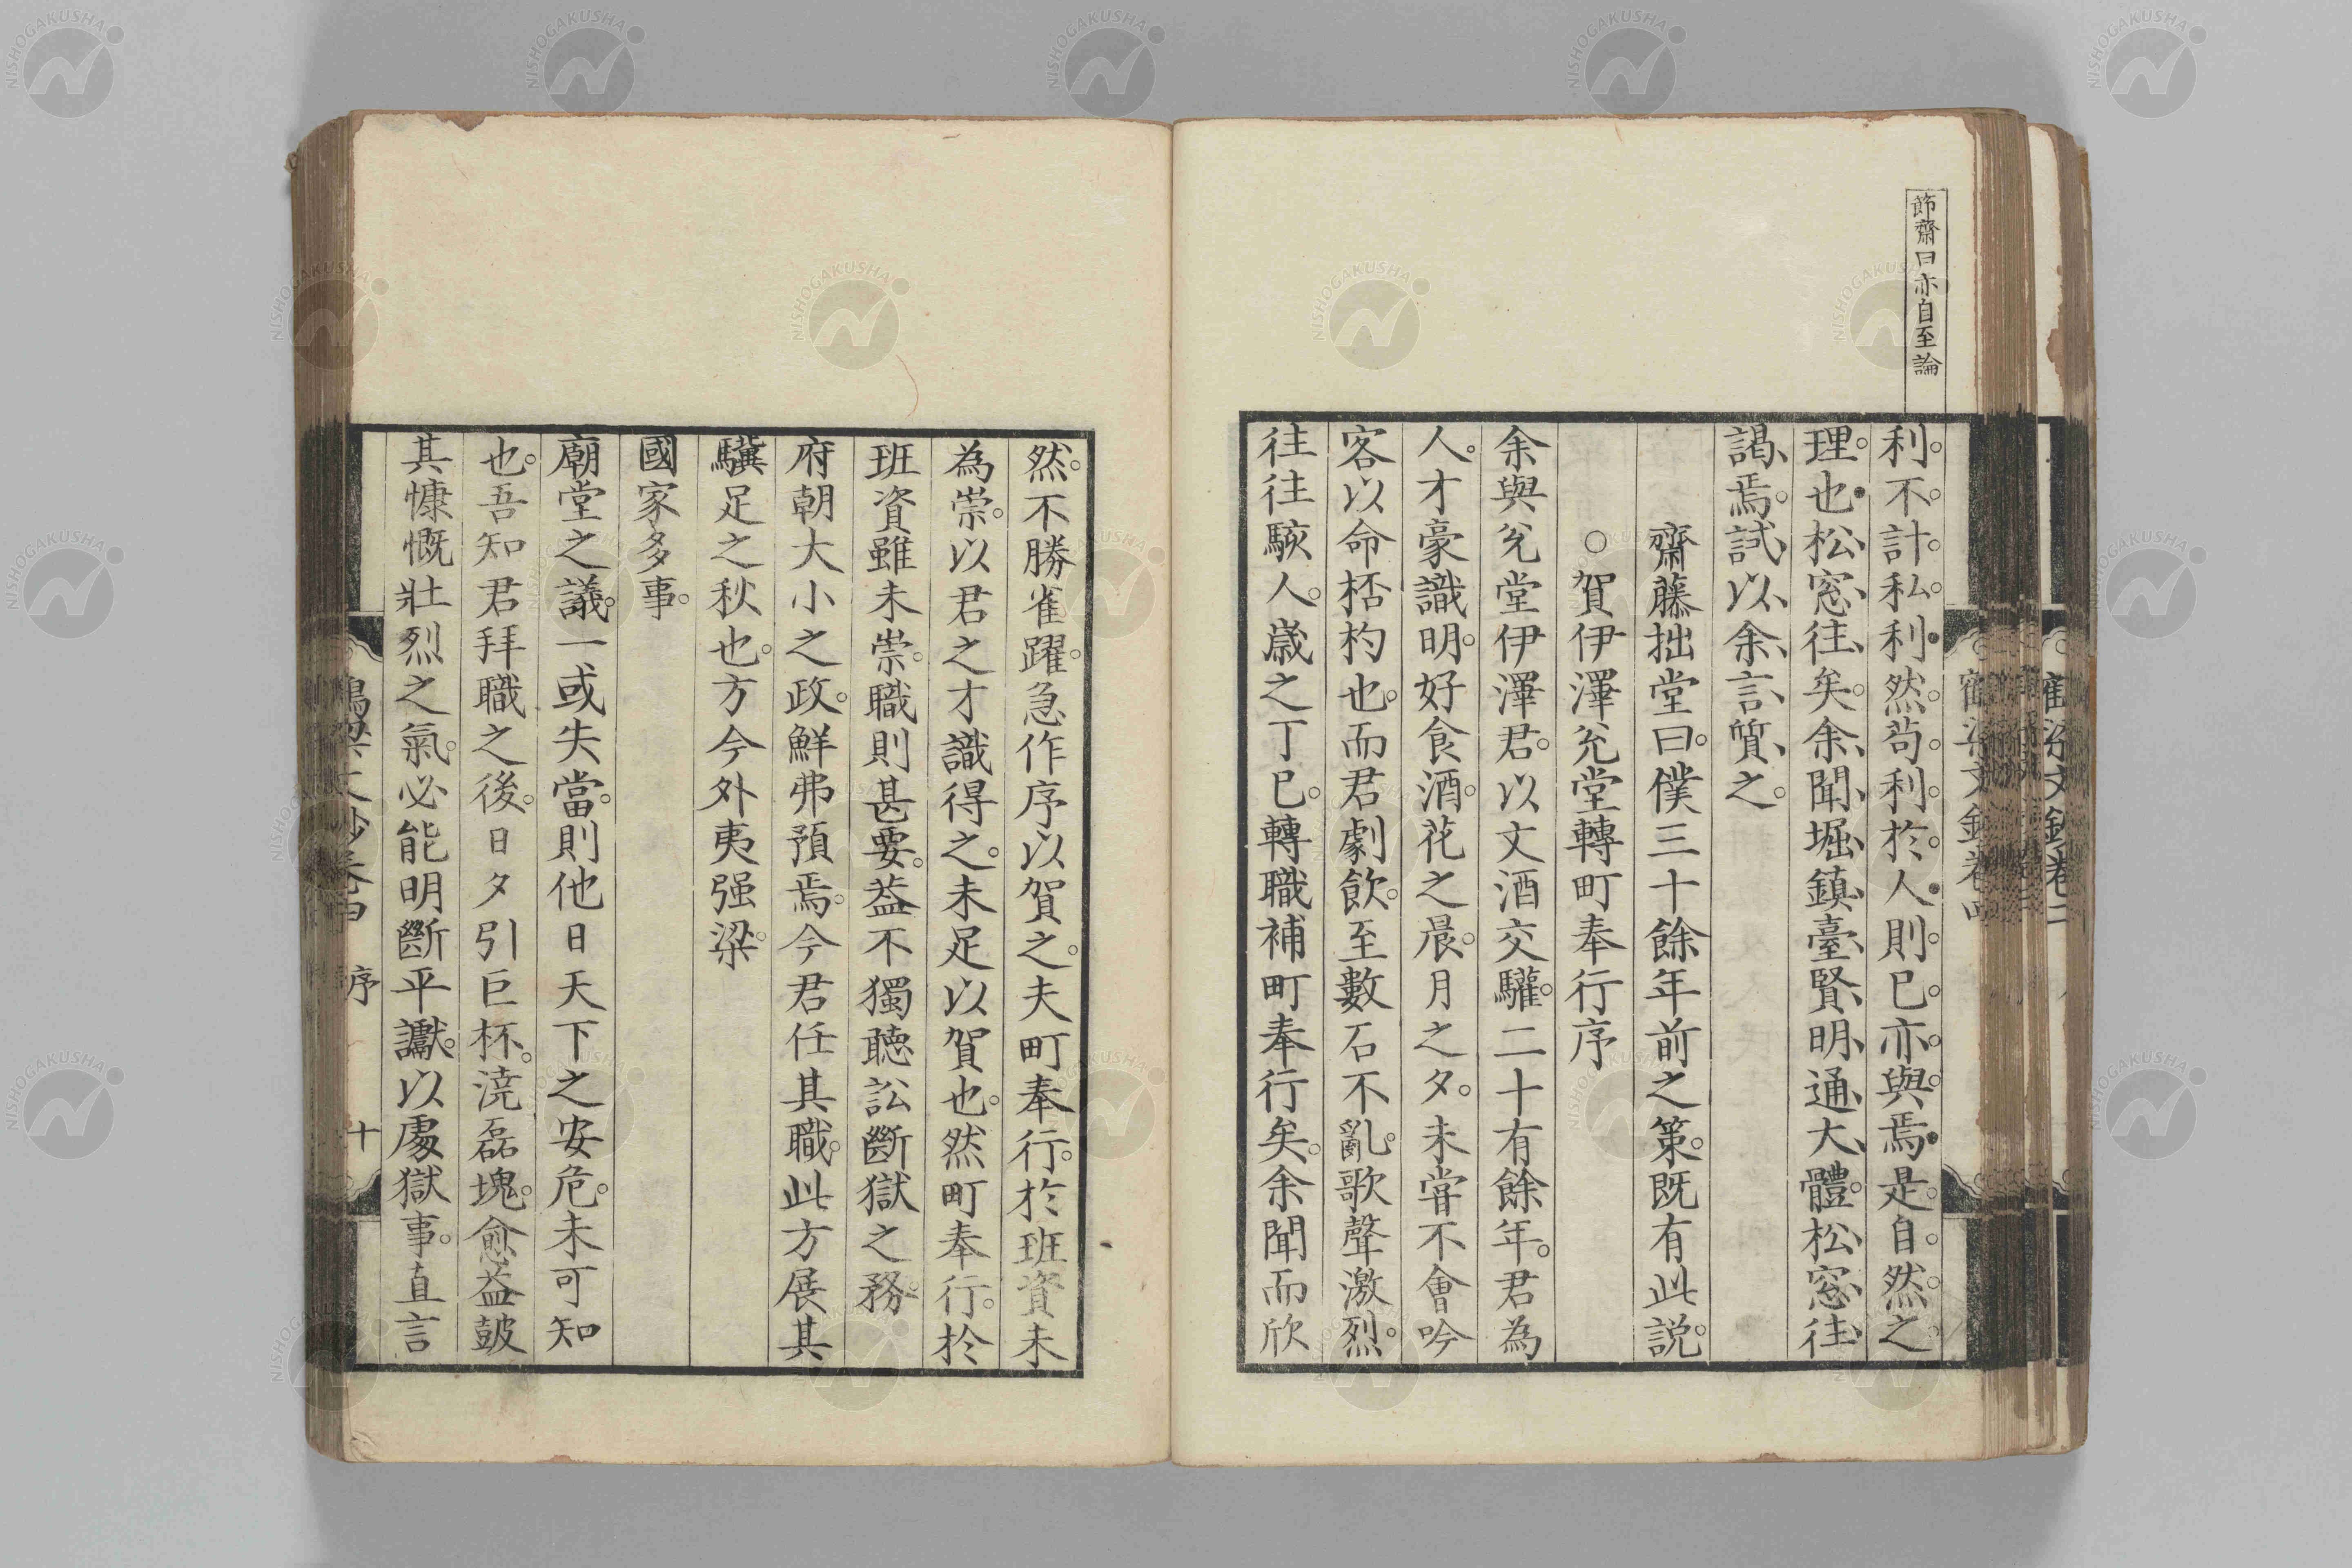 節齋曰亦自至論
利。不。計。私。利。然。苟。利。於。人。則。已。亦。與。焉。是。自。然。之。
理。也。松、窓、往、矣。余、聞、堀、鎮、臺、賢、明、通、大、體。松、窓、往、
謁、焉。試、以、余、言、質、之。
齋藤拙堂曰。僕三十餘年前之策。既有此説。
○賀伊澤兊堂轉町奉行序
余與兊堂伊澤君。以文酒交驩。二十有餘年。君為
人。才豪識明。好食酒。花之晨。月之夕。未甞不會吟
客以命桮杓也。而君劇飲。至數石不亂。歌聲激烈。
往往駭人。歳之丁巳。轉職補町奉行矣。余聞而欣
然。不勝雀躍。急作序以賀之。夫町奉行。於班資未
為崇。以君之才識得之。未足以賀也。然町奉行。於
班資雖未崇。職則甚要。葢不獨聽訟斷獄之務。
府朝大小之政。鮮弗預焉。今君任其職。此方展其
驥足之秋也。方今外夷强梁。
國家多事。
廟堂之議。一或失當。則他日天下之安危。未可知
也。吾知君拜職之後。日夕引巨杯。澆磊塊。愈益皷
其慷慨壯烈之氣。必能明斷平讞。以處獄事。直言
序
十
鶴梁文鈔卷四
鶴梁文鈔卷二
NISHOGAKUSHA